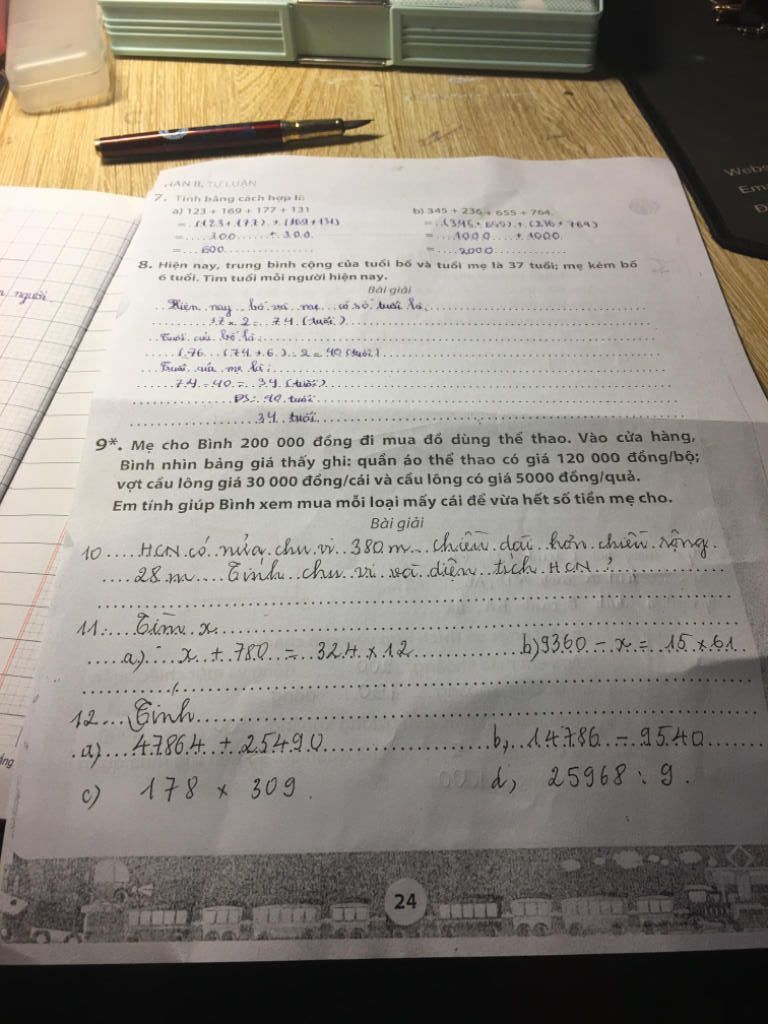 PHẦN II. TỰ LUẬN
7. Tính bằng cách hợp lí:
a) 123 + 169 + 177 + 131
b) 345 + 236 + 655 + 764
= (123+177) + (169+131)
= (345+655) + (236+764)
= 300 + 300
= 1000 + 1000
= 600
= 2000
8. Hiện nay, trung bình cộng của tuổi bố và tuổi mẹ là 37 tuổi; mẹ kém bố
6 tuổi. Tìm tuổi mỗi người hiện nay.
Bài giải
Hiện nay bố và mẹ có số tuổi là
37 x 2 = 74 (tuổi)
Tuổi của bố là:
(74 + 6) : 2 = 40 (tuổi)
Tuổi của mẹ là:
74 - 40 = 34 (tuổi)
ĐS: 40 tuổi
34 tuổi
9*. Mẹ cho Bình 200 000 đồng đi mua đồ dùng thể thao. Vào cửa hàng,
Bình nhìn bảng giá thấy ghi: quần áo thể thao có giá 120 000 đồng/bộ;
vợt cầu lông giá 30 000 đồng/cái và cầu lông có giá 5000 đồng/quả.
Em tính giúp Bình xem mua mỗi loại mấy cái để vừa hết số tiền mẹ cho.
Bài giải
10 HCN có nửa chu vi 380 m chiều dài hơn chiều rộng
28 m Tính chu vi và diện tích HCN?
11 Tìm x
a) x + 780 = 324 x 12
b) 9360 - x = 15 x 61
12 Tính
a) 47864 + 25490
b, 14786 - 9540
c) 178 x 309
d, 25968 : 9.
24
người
Webs
Ema